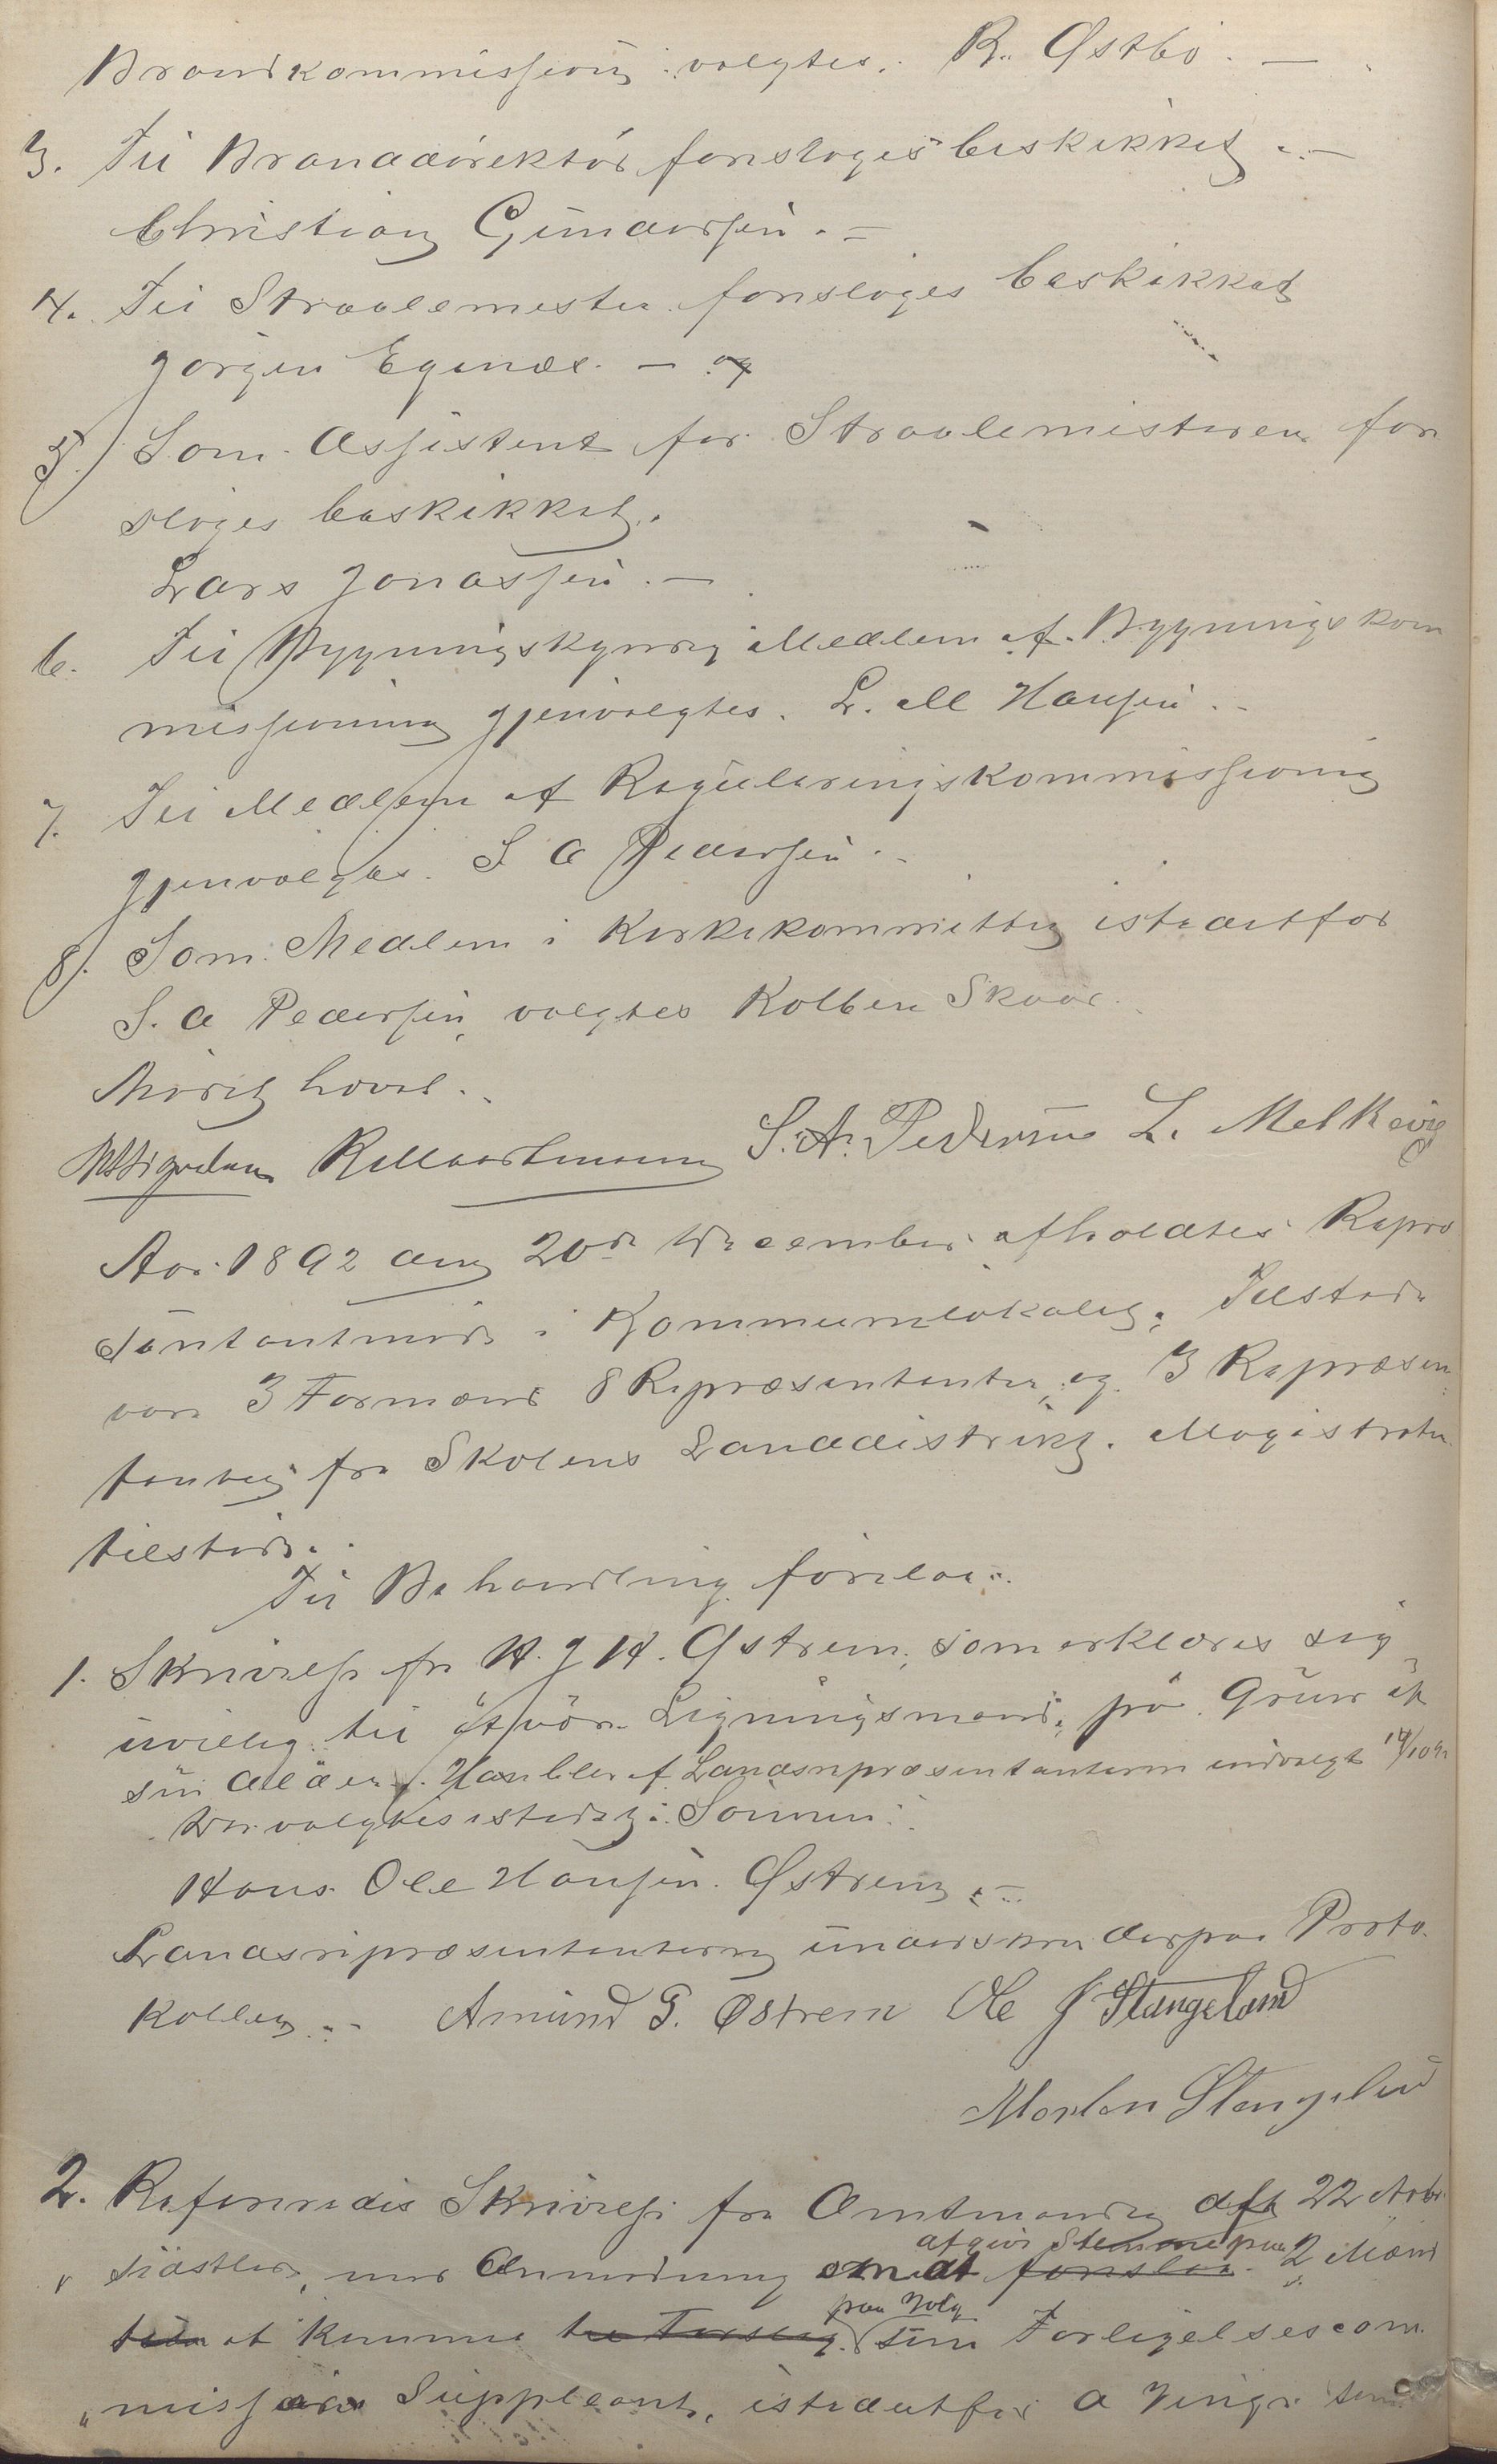 Brandkommissionen valgtes. R. Østbø. —
3. Til Branddirektør foresloges beskikket. —
Christian Gundersen. —
4. Til Straalemester foresloges beskikket
Jørgen Egenæs. — og
5. Som Assistent for Straalemesteren fore
sloges beskikket.
Lars Jonassen. —
6. Til Bygningskyndig Medlem af Bygningskom
missionen gjenvalgtes. L. M Hansen. -
7. Til Medlem af Reguleringskommissionen
gjenvalgtes. S A Pedersen. -
8. Som Medlem i Kirkekommitten istedetfor
S. A Pedersen, valgtes Kolben Skaar.
Mødet hævet.
S. A. Pedersen L. Melkevig
Aar 1892 den 20de December afholdtes Repræ
sentantmøde i Kommunelokalet. Tilstede
var 3 Formænd 8 Repræsentanter og 3 Repræsen
tanter fra Skolens Landdistrikt. Magistraten
tilstede.
Til Behandling forelaa:
1. Skrivelse fra H. J H. Østrem, som erklæres sig
uvillig til at være Ligningsmand, på Grund af
sin Alder. Han blev af Landsrepræsentanterne indvalgt 14/10 92
Der valgtes istedet: Sønnen:
Hans Ole Hansen Østrem. —
Landsrepræsentanterne underskrev derpaa Proto-
kollen. - Amund G. Østrem Ole J Stangeland
Morten Stangeland
2. Refereredes Skrivelse fra Amtmanden dft 22 Novbr.
afgive Stemme paa
sidstleden, med Anmodning om at foreslaa 2 Mænd
paa Valg
til at kunne til Forslag som Forligelsescom
missær Suppleant, istedetfor A Vinge som